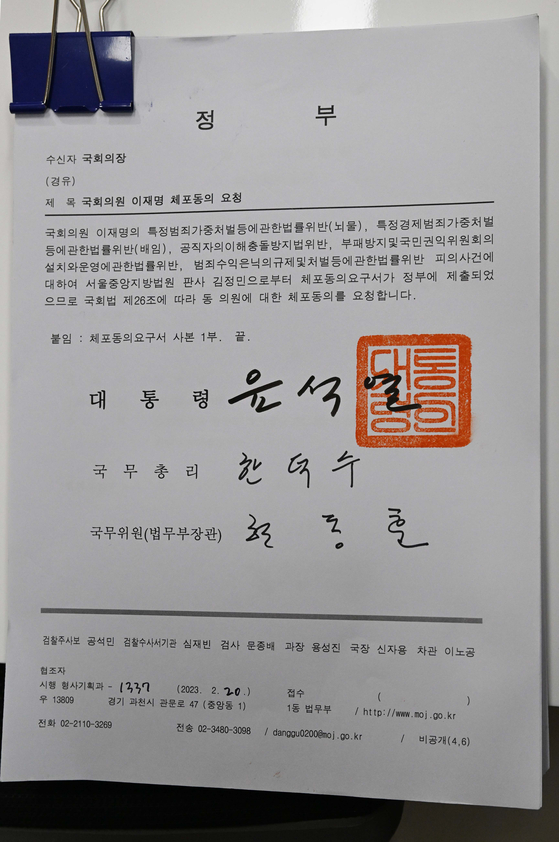 정 부
수신자 국회의장
(경유)
제 목 국회의원 이재명 체포동의 요청
국회의원 이재명의 특정범죄가중처벌등에관한법률위반(뇌물), 특정경제범죄가중처벌
등에관한법률위반(배임), 공직자의이해충돌방지법위반, 부패방지및국민권익위원회의
설치와운영에관한법률위반, 범죄수익은닉의규제및처벌등에관한법률위반 피의사건에
대하여 서울중앙지방법원 판사 김정민으로부터 체포동의요구서가 정부에 제출되었
으므로 국회법 제26조에 따라 동 의원에 대한 체포동의를 요청합니다.
붙임 : 체포동의요구서 사본 1부. 끝.
대 통 령 윤석열
대통령의
국 무 총 리 한덕수
국무위원(법무부장관) 한동훈
검찰주사보 공석민 검찰수사서기관 심재빈 검사 문종배 과장 용성진 국장 신자용 차관 이노공
협조자
시행 형사기획과 - 1337 (2023. 2. 20.) 접수 ( )
우 13809 경기 과천시 관문로 47 (중앙동 1) 1동 법무부 / http://www.moj.go.kr
전화 02-2110-3269 전송 02-3480-3098 / danggu0200@moj.go.kr / 비공개(4,6)